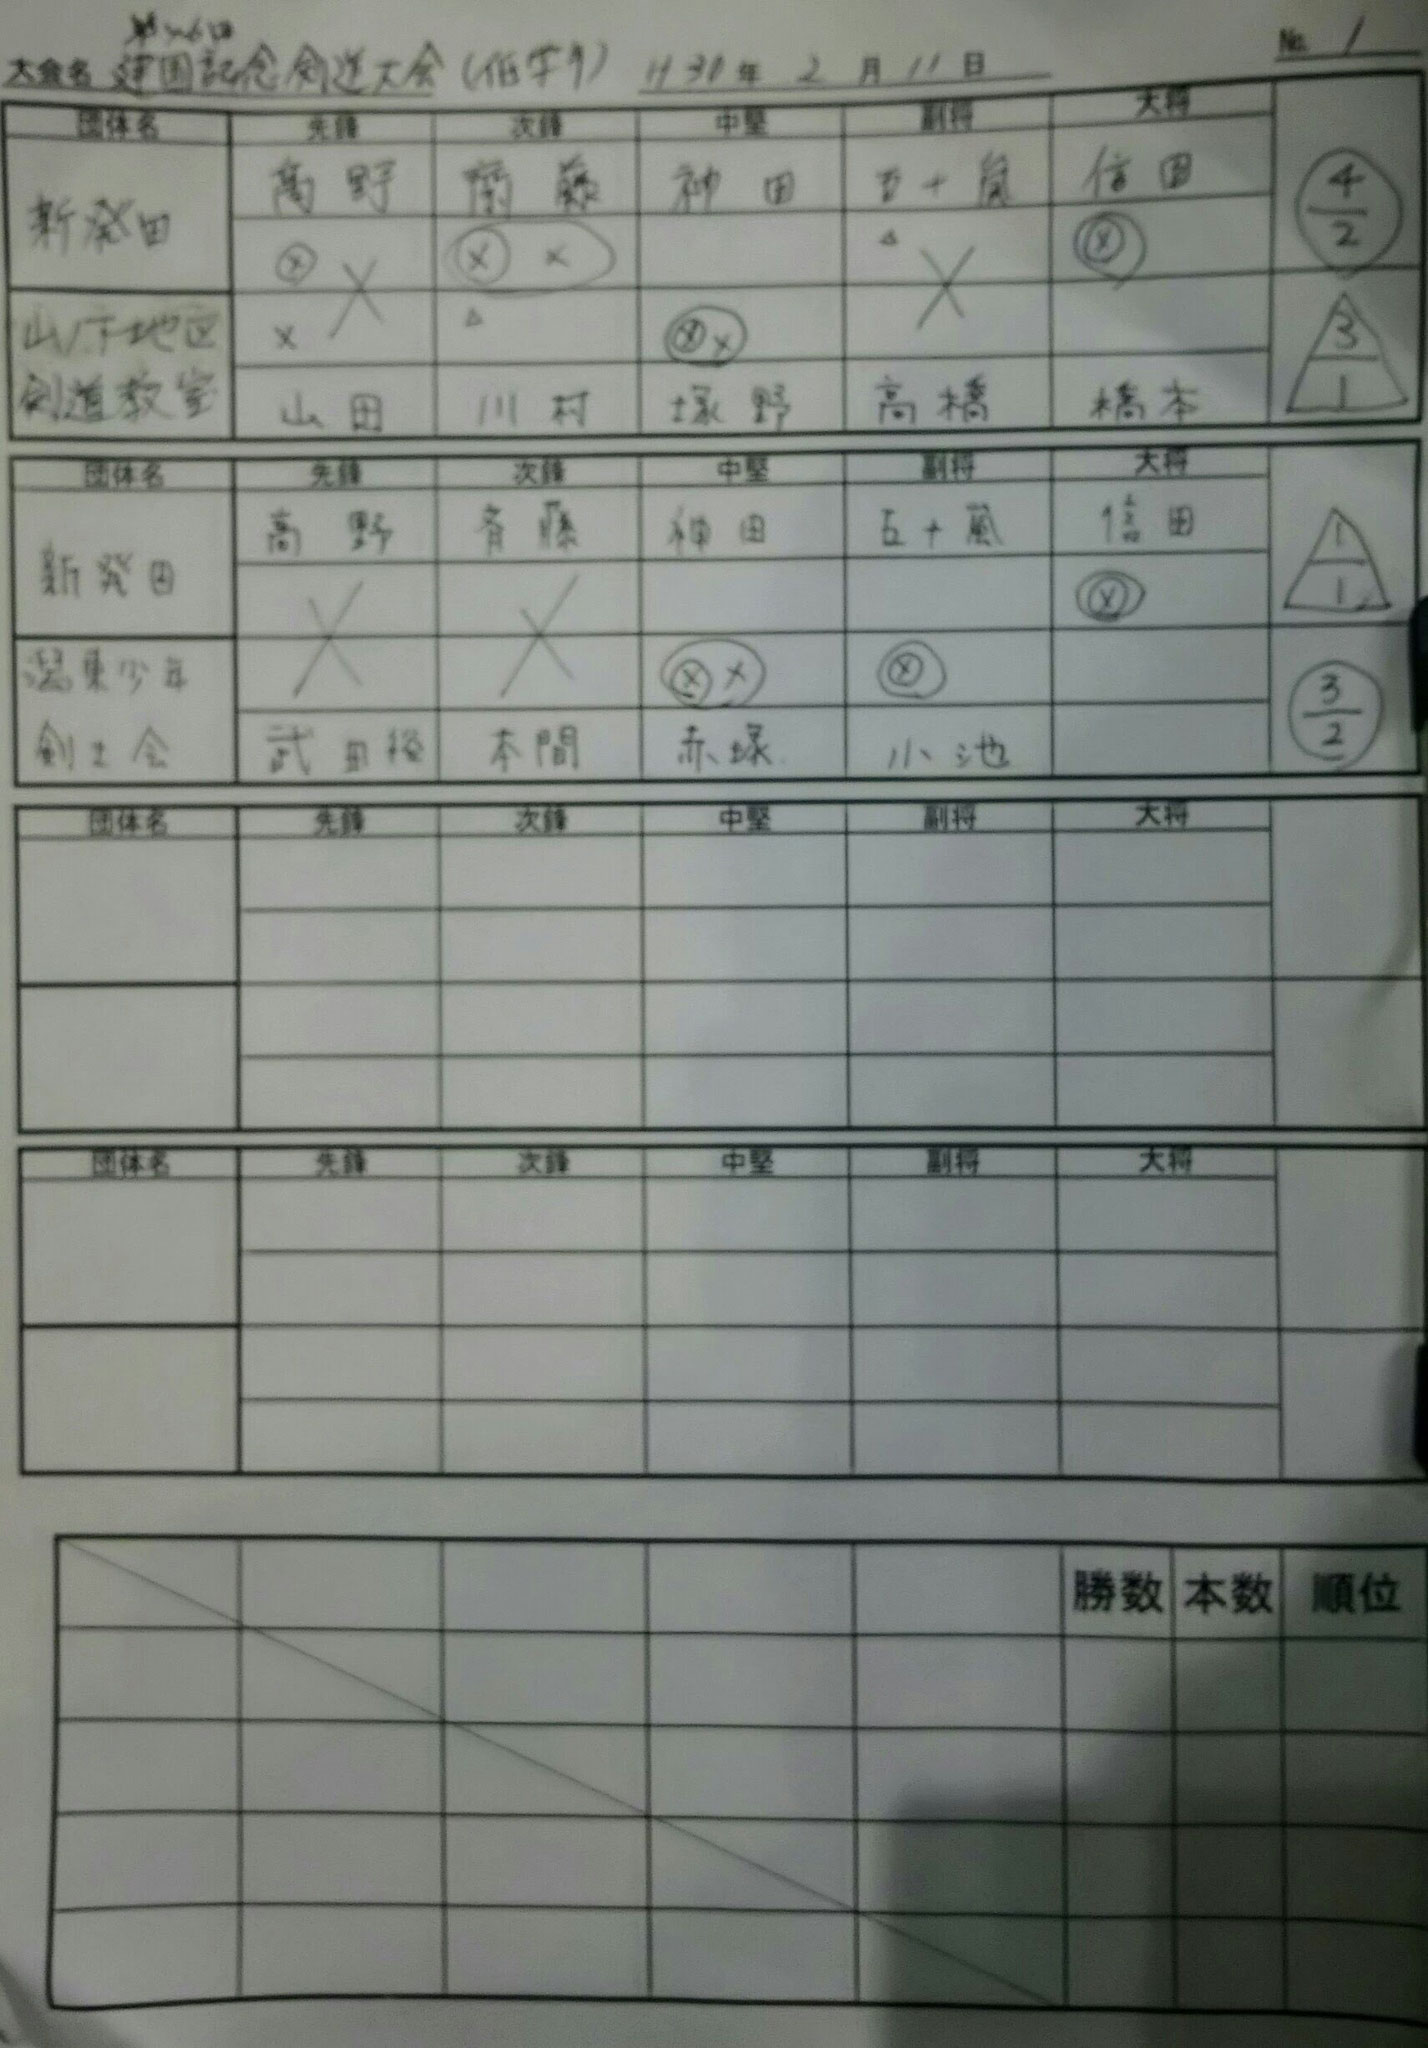 大会名 建国記念剣道大会 (低学年) H30年 2月 11日 No. 1
団体名 先鋒 次鋒 中堅 副将 大将
新発田 高野 齋藤 神田 五十嵐 信田 4/2
山下地区剣道教室 山田 川村 塚野 高橋 橋本 3/1
団体名 先鋒 次鋒 中堅 副将 大将
新発田 高野 斉藤 神田 五十嵐 信田 1/1
潟東少年剣士会 武田 本間 赤塚 小池 3/2
団体名 先鋒 次鋒 中堅 副将 大将
団体名 先鋒 次鋒 中堅 副将 大将
勝数 本数 順位